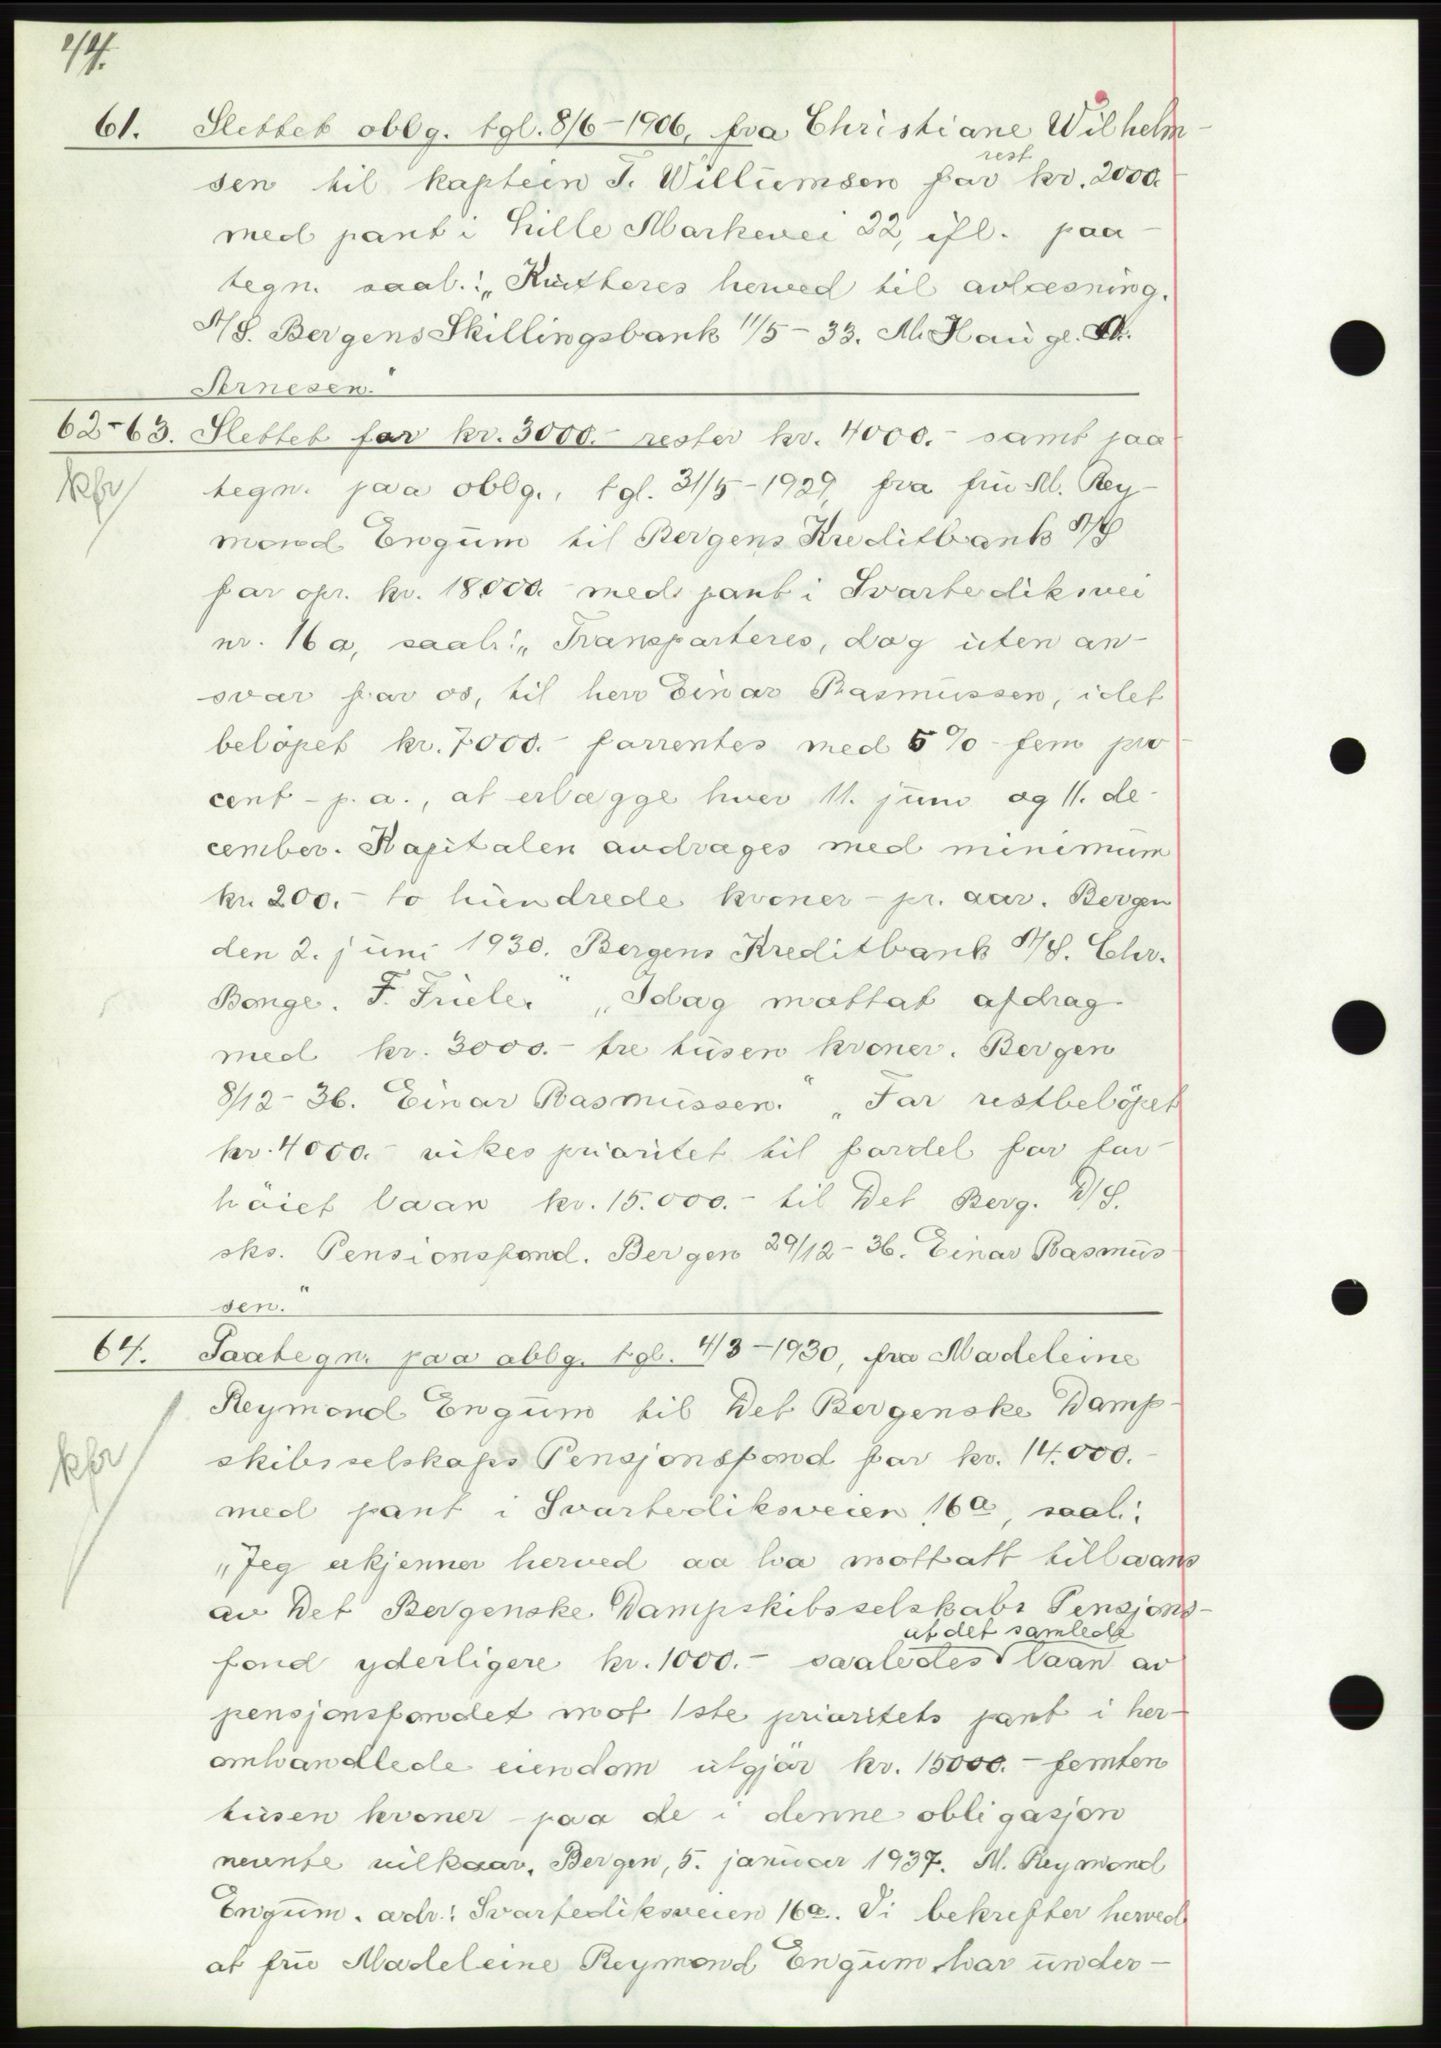 44.
61. Slettet oblg. tgl. 8/6-1906, fra Christiane Wilhelm-
sen til kaptein T. Willumsen for rest kr. 2000.
med pant i Lille Markevei 22, ifl. paa-
tegn. saal.: „Kvitteres herved til avlæsning.
A/S. Bergens Skillingsbank 11/5-33. M. Hauge.
Arnesen."
62-63. Slettet for kr. 3000.- rester kr. 4000.- samt paa
kfr
tegn. paa oblg., tgl. 31/5-1929, fra fru M. Rey-
mond Engum til Bergens Kreditbank A/S
for opr. kr. 18.000.- med pant i Svartediksvei
nr. 16a, saal.: „Transporteres, dog uten an-
svar for os, til herr Einar Rasmussen, idet
beløpet kr. 7000.- forrentes med 5% - fem pro
cent - p. a., at erlægge hver 11. juni og 11. de-
cember. Kapitalen avdrages med minimum
kr. 200.- to hundrede kroner - pr. aar. Bergen
den 2. juni 1930. Bergens Kreditbank A/S. Chr.
Bonge. F. Friele." „Idag mottat afdrag
med kr. 3000.- tre tusen kroner. Bergen
8/12-36. Einar Rasmussen." „For restbeløpet
kr. 4000.- vikes prioritet til fordel for for-
høiet laan kr. 15.000.- til Det Berg. D/S.
sks. Pensionsfond. Bergen 29/12-36. Einar Rasmus
sen."
64. Paategn. paa oblg. tgl. 4/3-1930, fra Madeleine
Reymond Engum til Det Bergenske Damp-
kfr
skibsselskaps Pensjonsfond for kr. 14.000.-
med pant i Svartediksveien 16a, saal.:
„Jeg erkjenner herved aa ha mottatt tillaans
av Det Bergenske Dampskibsselskabs Pensjons-
ut det samlede
fond yderligere kr. 1000.- saaledes laan av
pensjonsfondet mot 1ste prioritets pant i her-
omhandlede eiendom utgjør kr. 15000.- femten
tusen kroner - paa de i denne obligasjon
nevnte vilkaar. Bergen, 5. januar 1937. M. Reymond
Engum. adr.: Svartediksveien 16a. Vi bekrefter herved
at fru Madeleine Reymond Engum har under-